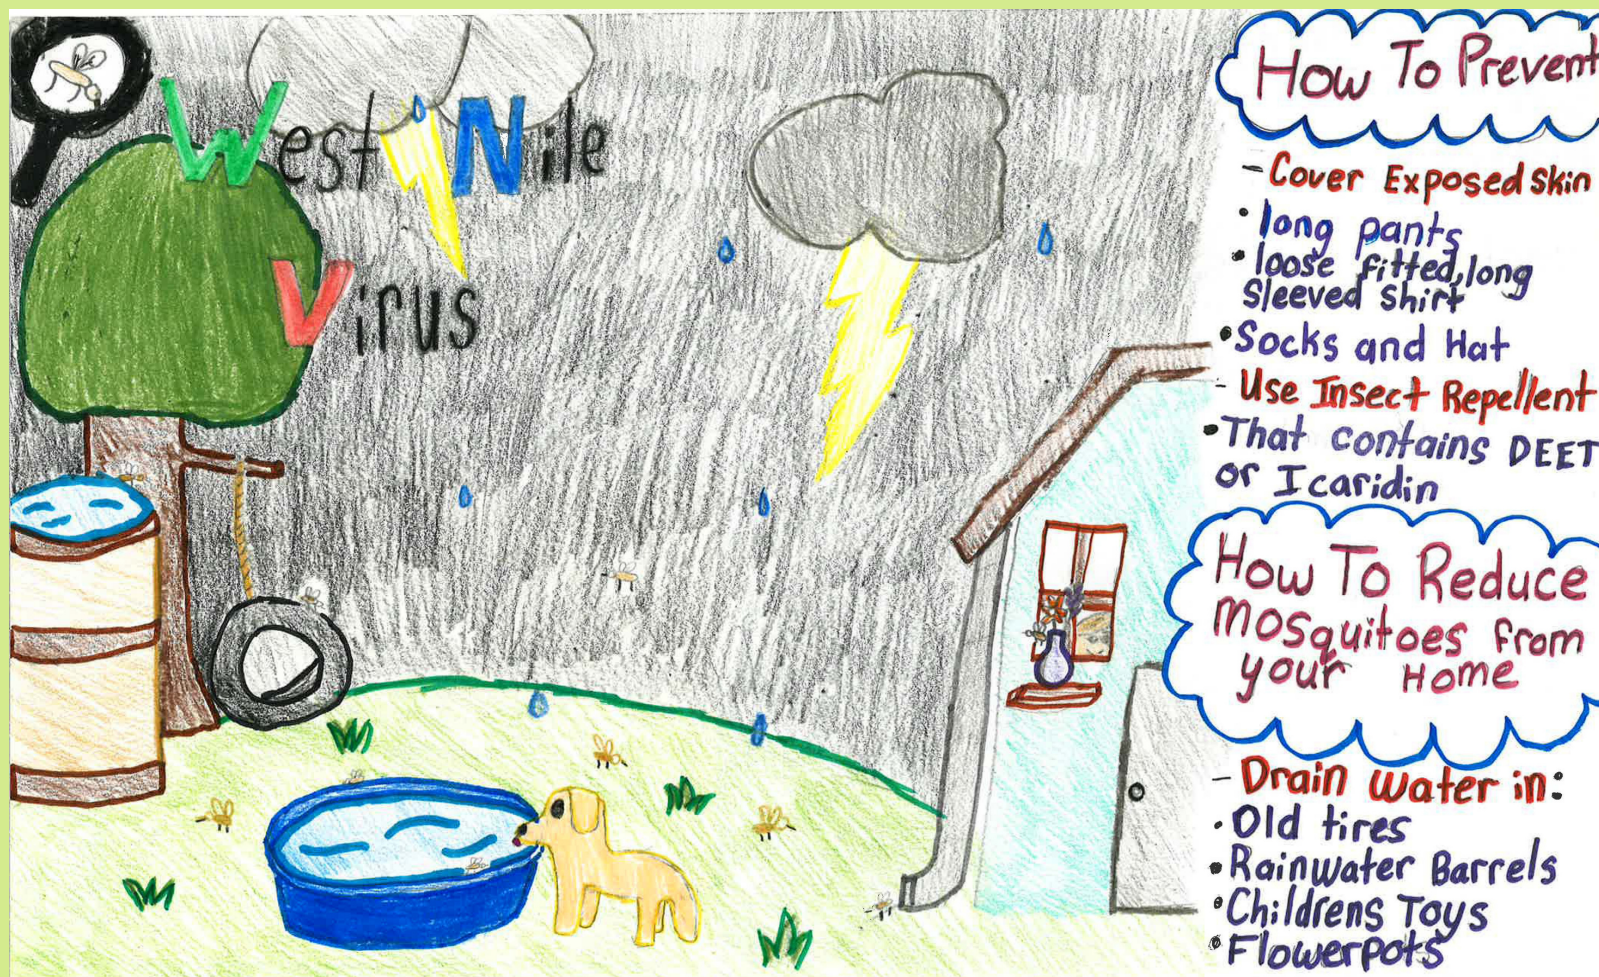 West Nile
Virus
How To Prevent
- Cover Exposed Skin
• long pants
• loose fitted, long
sleeved shirt
• Socks and Hat
- Use Insect Repellent
• That contains DEET
or Icaridin
How To Reduce
Mosquitoes from
your Home
- Drain Water in:
• Old tires
• Rainwater Barrels
• Childrens Toys
• Flowerpots